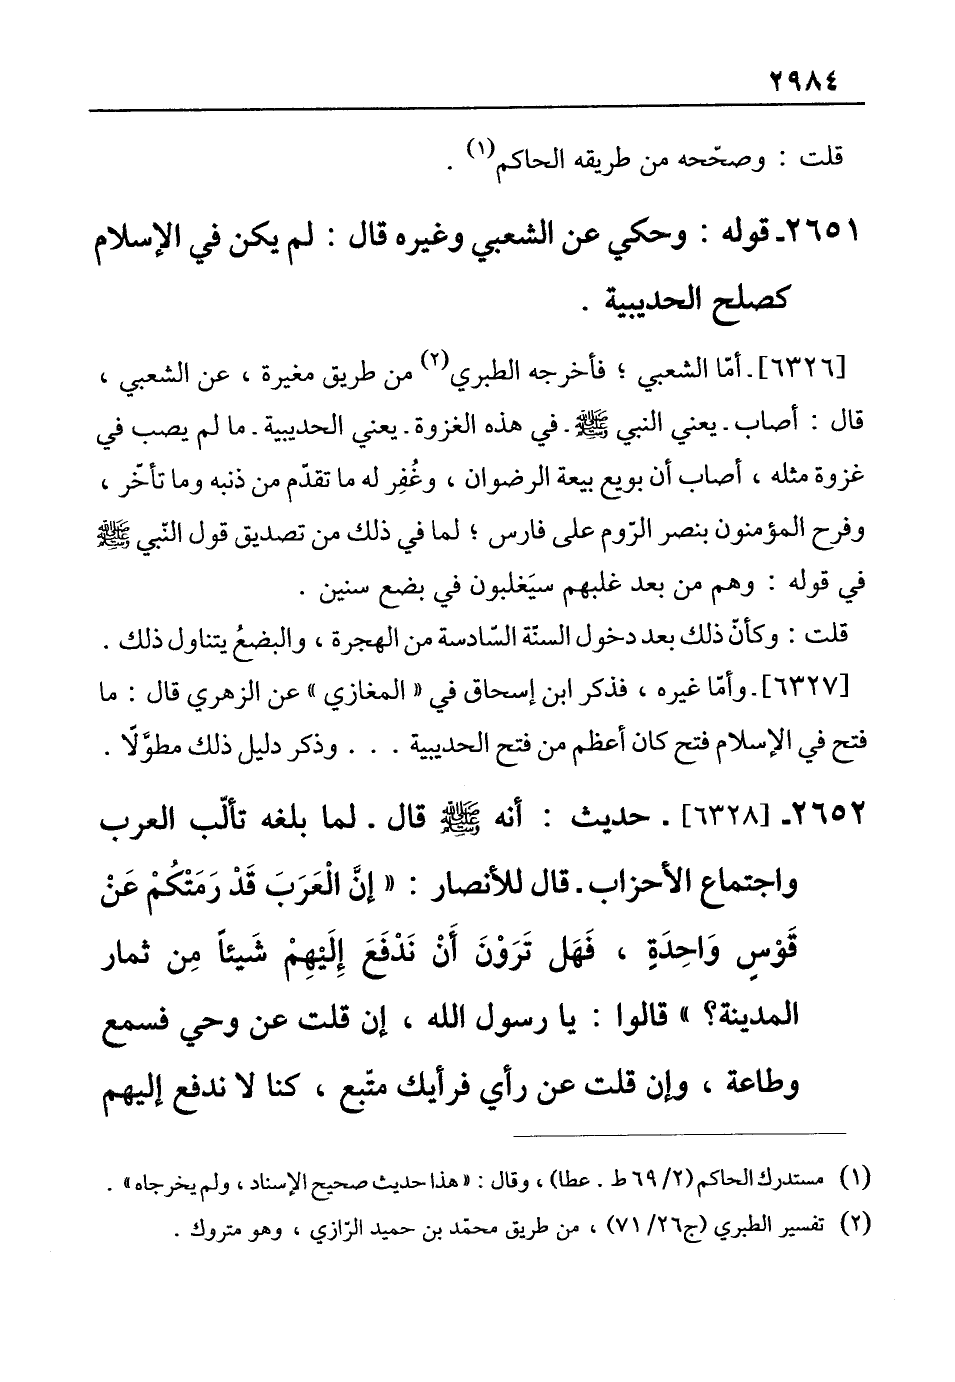 ٢٩٨٤
قلت : وصحّحه من طريقه الحاكم(١) .
٢٦٥١ـ قوله : وحكي عن الشعبي وغيره قال : لم يكن في الإسلام
كصلح الحديبية .
[٦٣٢٦]ـ أمّا الشعبي ؛ فأخرجه الطبري(٢) من طريق مغيرة ، عن الشعبي ،
قال : أصاب ـ يعني النبي ﷺ ـ في هذه الغزوة ـ يعني الحديبية ـ ما لم يصب في
غزوة مثله ، أصاب أن بويع بيعة الرضوان ، وغُفِر له ما تقدّم من ذنبه وما تأخّر ،
وفرح المؤمنون بنصر الرّوم على فارس ؛ لما في ذلك من تصديق قول النّبي ﷺ
في قوله : وهم من بعد غلبهم سيَغلبون في بضع سنين .
قلت : وكأنّ ذلك بعد دخول السنّة السّادسة من الهجرة ، والبضعُ يتناول ذلك .
[٦٣٢٧]ـ وأمّا غيره ، فذكر ابن إسحاق في « المغازي » عن الزهري قال : ما
فتح في الإسلام فتح كان أعظم من فتح الحديبية . . . وذكر دليل ذلك مطوَّلًا .
٢٦٥٢ـ [٦٣٢٨] . حديث : أنه ﷺ قال ـ لما بلغه تألّب العرب
واجتماع الأحزاب ـ قال للأنصار : « إِنَّ الْعَرَبَ قَدْ رَمَتْكُمْ عَنْ
قَوْسٍ وَاحِدَةٍ ، فَهَل تَرَوْنَ أَنْ نَدْفَعَ إِلَيْهِمْ شَيئاً مِن ثمار
المدينة؟ » قالوا : يا رسول الله ، إن قلت عن وحي فسمع
وطاعة ، وإن قلت عن رأي فرأيك متّبع ، كنا لا ندفع إليهم
(١) مستدرك الحاكم (٢/ ٦٩ ط . عطا) ، وقال : « هذا حديث صحيح الإسناد ، ولم يخرجاه » .
(٢) تفسير الطبري (ج٢٦/ ٧١) ، من طريق محمّد بن حميد الرّازي ، وهو متروك .